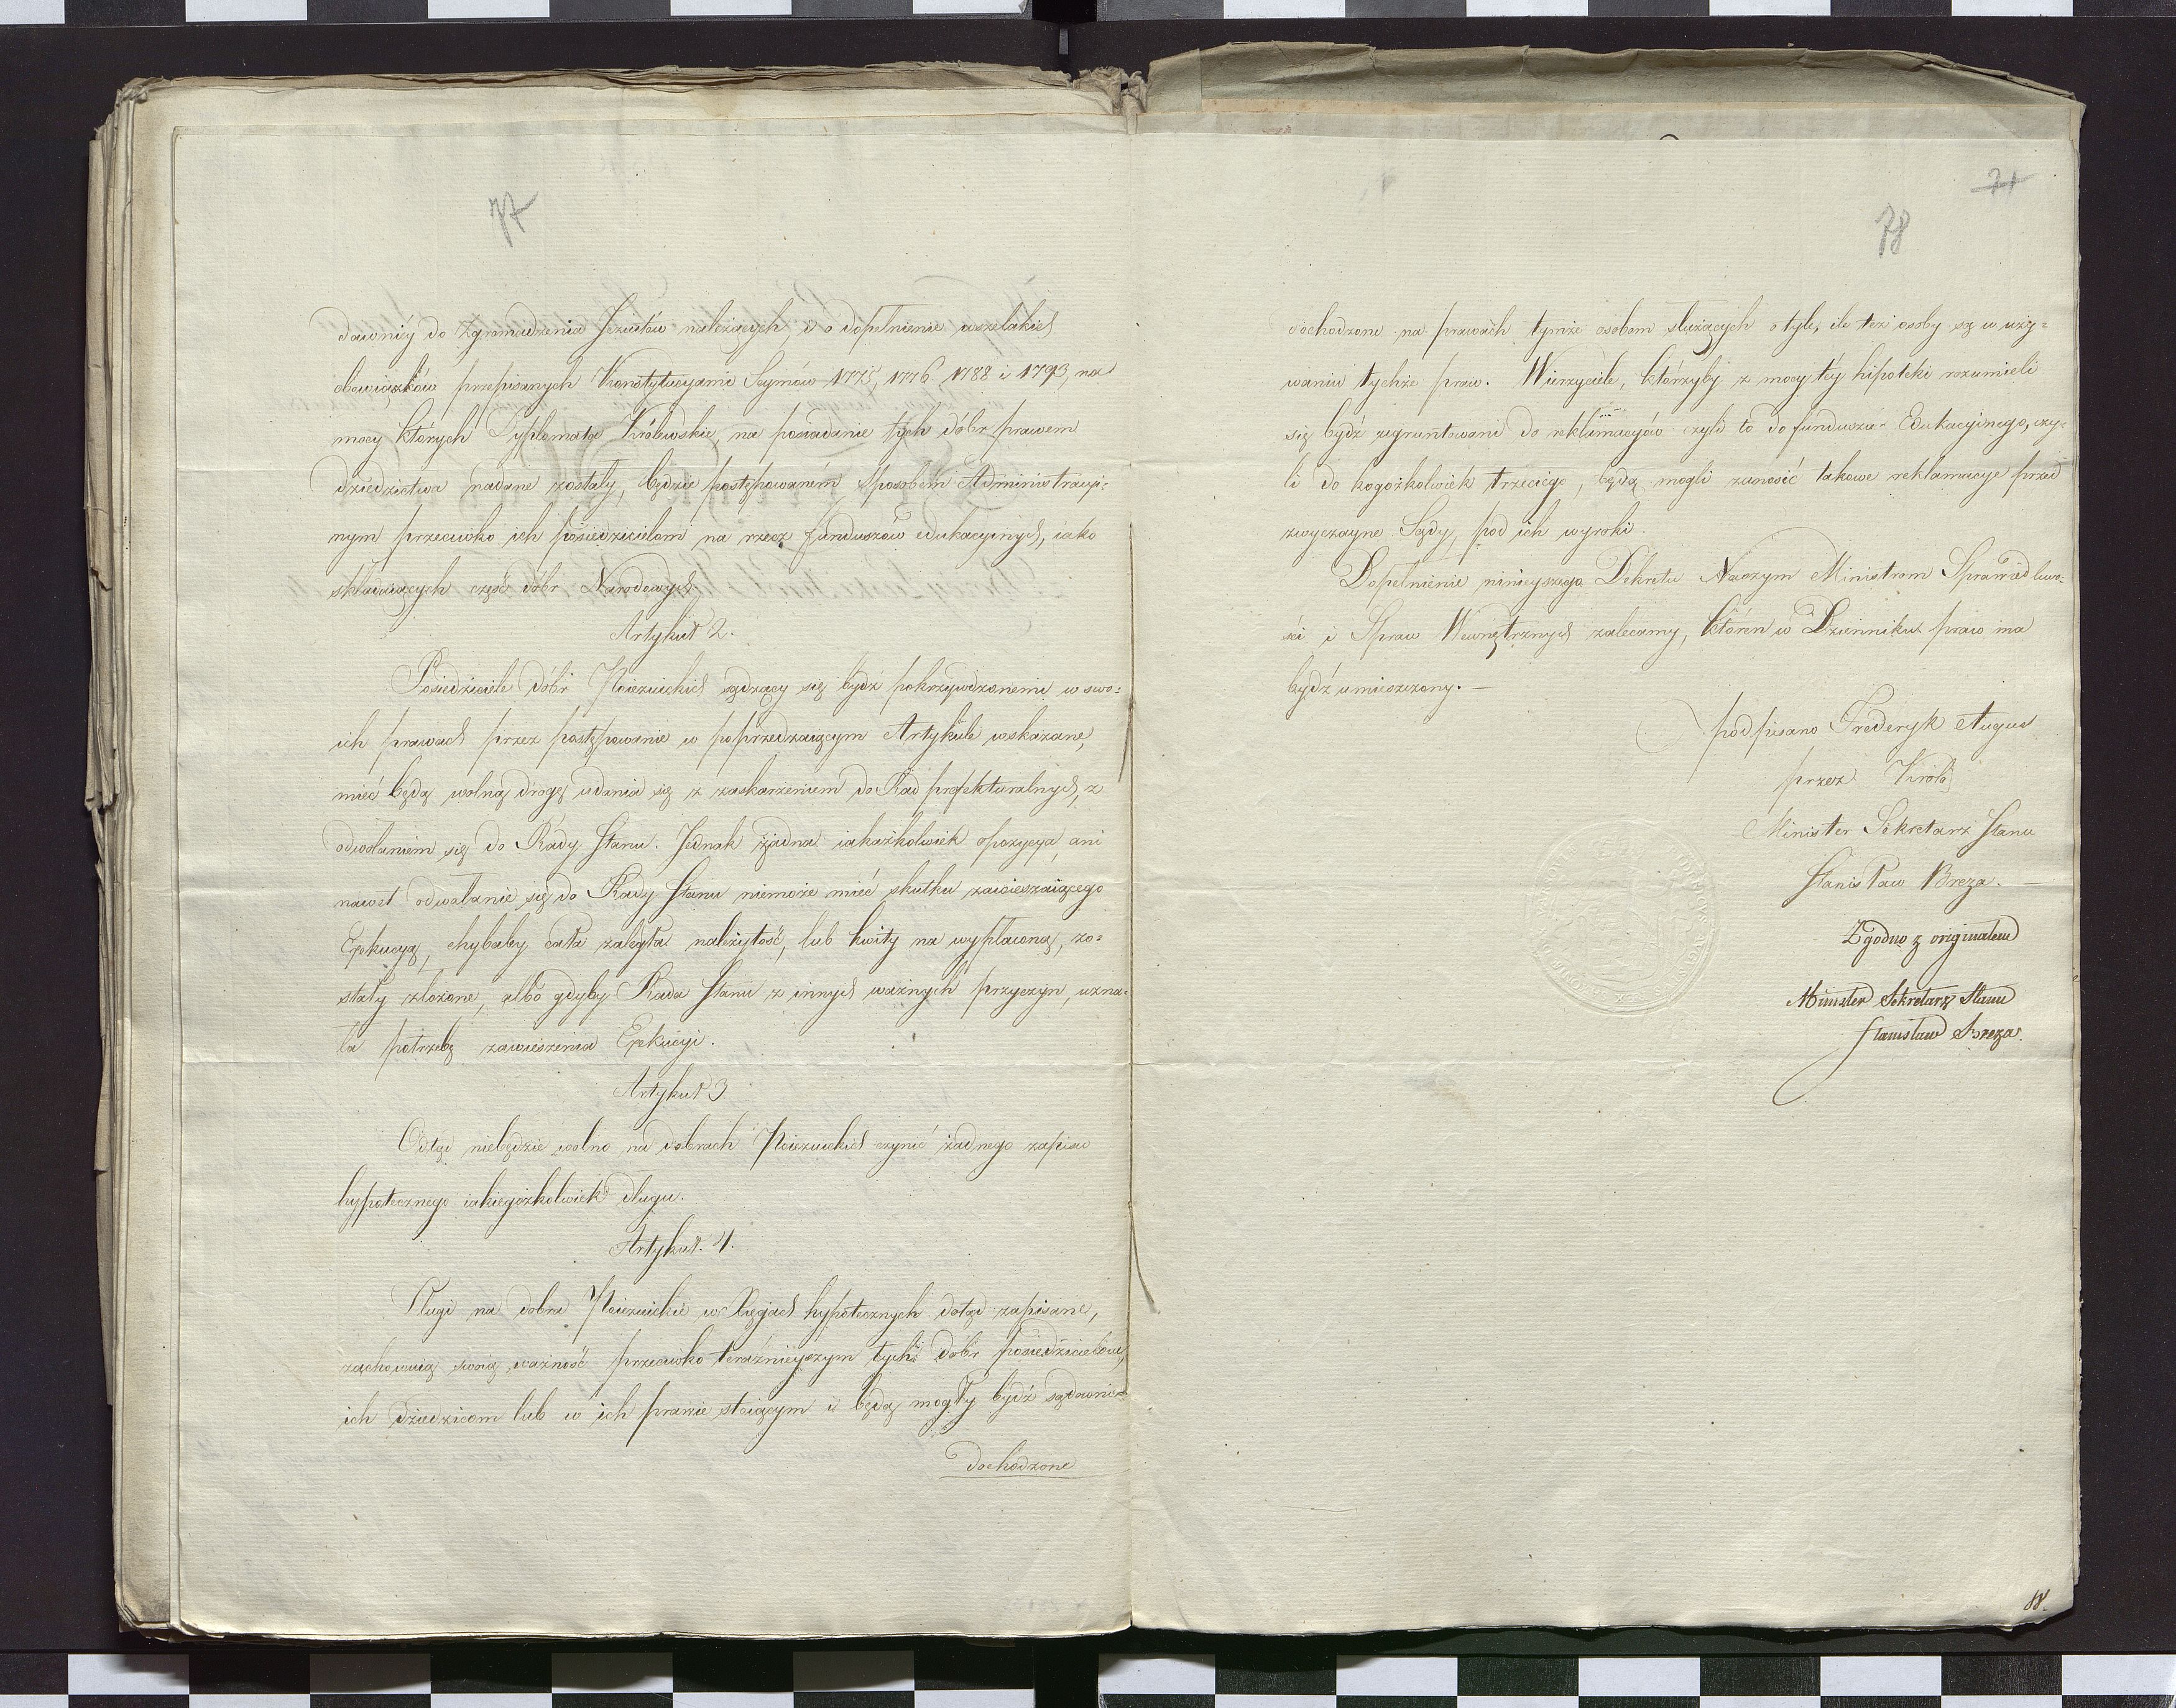 77
dawniéy do Zgromadzenia Jezuitów należących, i o dopełnienie wszelakich
obowiązków przepisanych Konstytucyami Seymów 1775, 1776 1788 i 1793, na
mocy których Dyplomata Królewskie, na posiadanie tych dóbr prawem
dziedzictwa nadane zostały, będzie postępowaném sposobem Administracyi=
nym przeciwko ich posiedzicielom na rzecz funduszów edukacyinych, iako
składaiących część dóbr Narodowych.
Artykuł 2.
Posiedziciele dóbr Poiezuickich sądzący się bydź pokrzywdzonemi w swo=
ich prawach przez postępowanie w poprzedzaiącym Artykule wskazane,
mieć będą wolną drogę udania się z zaskarżeniem do Rad prefekturalnych, z
odwołaniem się do Rady Stanu. Jednak żadna iakażkolwiek opozycya, ani
nawet odwołanie się do Rady Stanu niemoże mieć skutku zawieszaiącego
Exekucyą, chybaby cała zaległa należytość, lub kwity na wypłaconą, zo=
stały złożone, albo gdyby Rada Stanu z innych ważnych przyczyn, uzna=
ła potrzebę zawieszenia Exekucyi.
Artykuł 3
Odtąd niebędzie wolno na dobrach Poiezuickich czynić żadnego zapisu
hypotecznego iakiegożkolwiek długu.
Artykuł. 4.
Długi na dobra Poiezuickie w Xięgach hypotecznych dotąd zapisane,
zachowuią swoią ważność przeciwko teraźnieyszym tychże dóbr posiedzicielom,
ich dziedzicom lub w ich prawie stoiącym i będą mogły bydź sądownie
dochodzone
71
78
dochodzone na prawach tymże osobom służących o tyle, ile też osoby są w uży=
waniu tychże praw. Wierzyciele, którzyby z mocy téy hipoteki rozumieli
się bydź ugruntowani do reklamacyów czyli to do funduszu Edukacyinego, czy=
li do kogożkolwiek trzeciego, będą mogli zanosić takowe reklamacye przed
zwyczayne Sądy, pod ich wyroki.
Dopełnienie ninieyszego Dekretu Naszym Ministrom Sprawiedliwo=
ści i Spraw Wewnętrznych zalecamy, któren w Dzienniku praw ma
bydź umieszczony.—
podpisano Frederyk August
przez Króla
Minister Sekretarz Stanu
Stanisław Breza.—
Zgodno z originałem
Minister Sekretarz Stanu
Stanisław Breza.